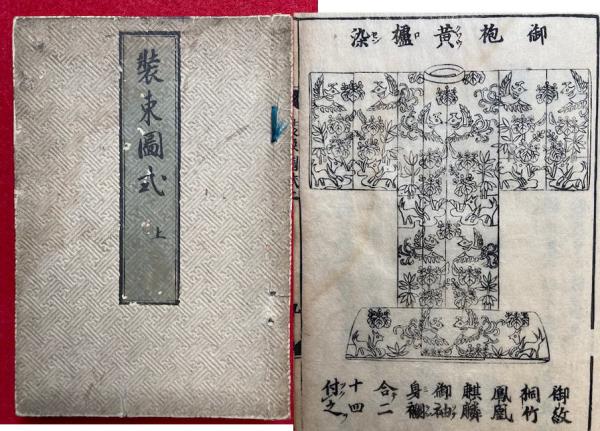 裝束圖式
上
御袍黄櫨染
クワウ ロ セン
御紋
桐竹
鳳凰
麒麟
御袖
合二
十四
付之